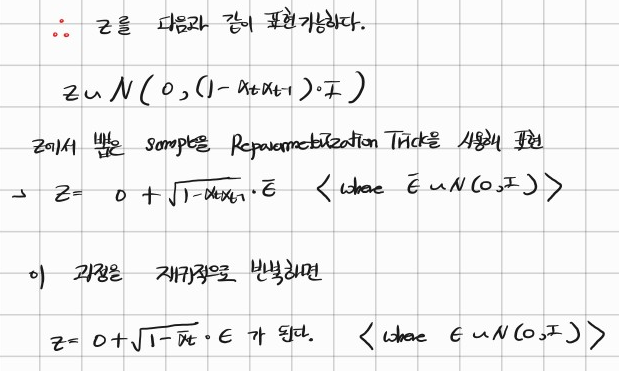 ∴ z를 다음과 같이 표현가능하다.
z ~ N(0, (1-αtαt-1)·I)
z에서 뽑은 sample을 Reparametrization Trick을 사용해 표현
→ z = 0 + √(1-αtαt-1) · ε̄ < where ε̄ ~ N(0, I) >
이 과정을 재귀적으로 반복하면
z = 0 + √(1-ᾱt) · ε 가 된다. < where ε ~ N(0, I) >